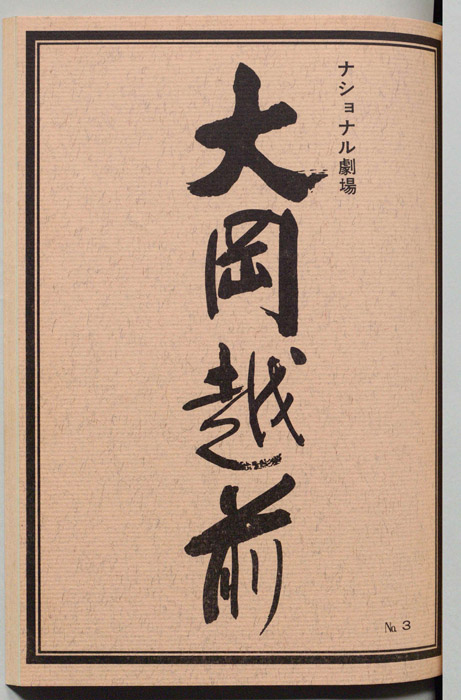 ナショナル劇場
大岡越前
No. 3